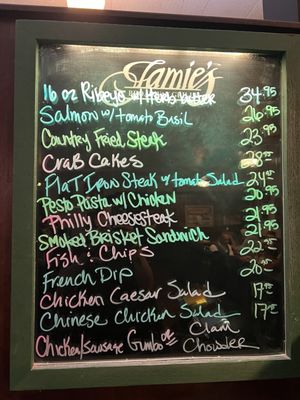 Jamie's
16 oz Ribeye w/ Herb Butter 34.95
Salmon w/ tomato Basil 26.95
Country Fried Steak 23.95
Crab Cakes
Flat Iron Steak w/ tomato Salad 24.95
Pesto Pasta w/ Chicken 20.95
Philly Cheesesteak 21.95
Smoked Brisket Sandwich 21.95
Fish & Chips 22.95
French Dip 20.95
Chicken Caesar Salad 17.95
Chinese Chicken Salad 17.95
Chicken/Sausage Gumbo or Clam Chowder